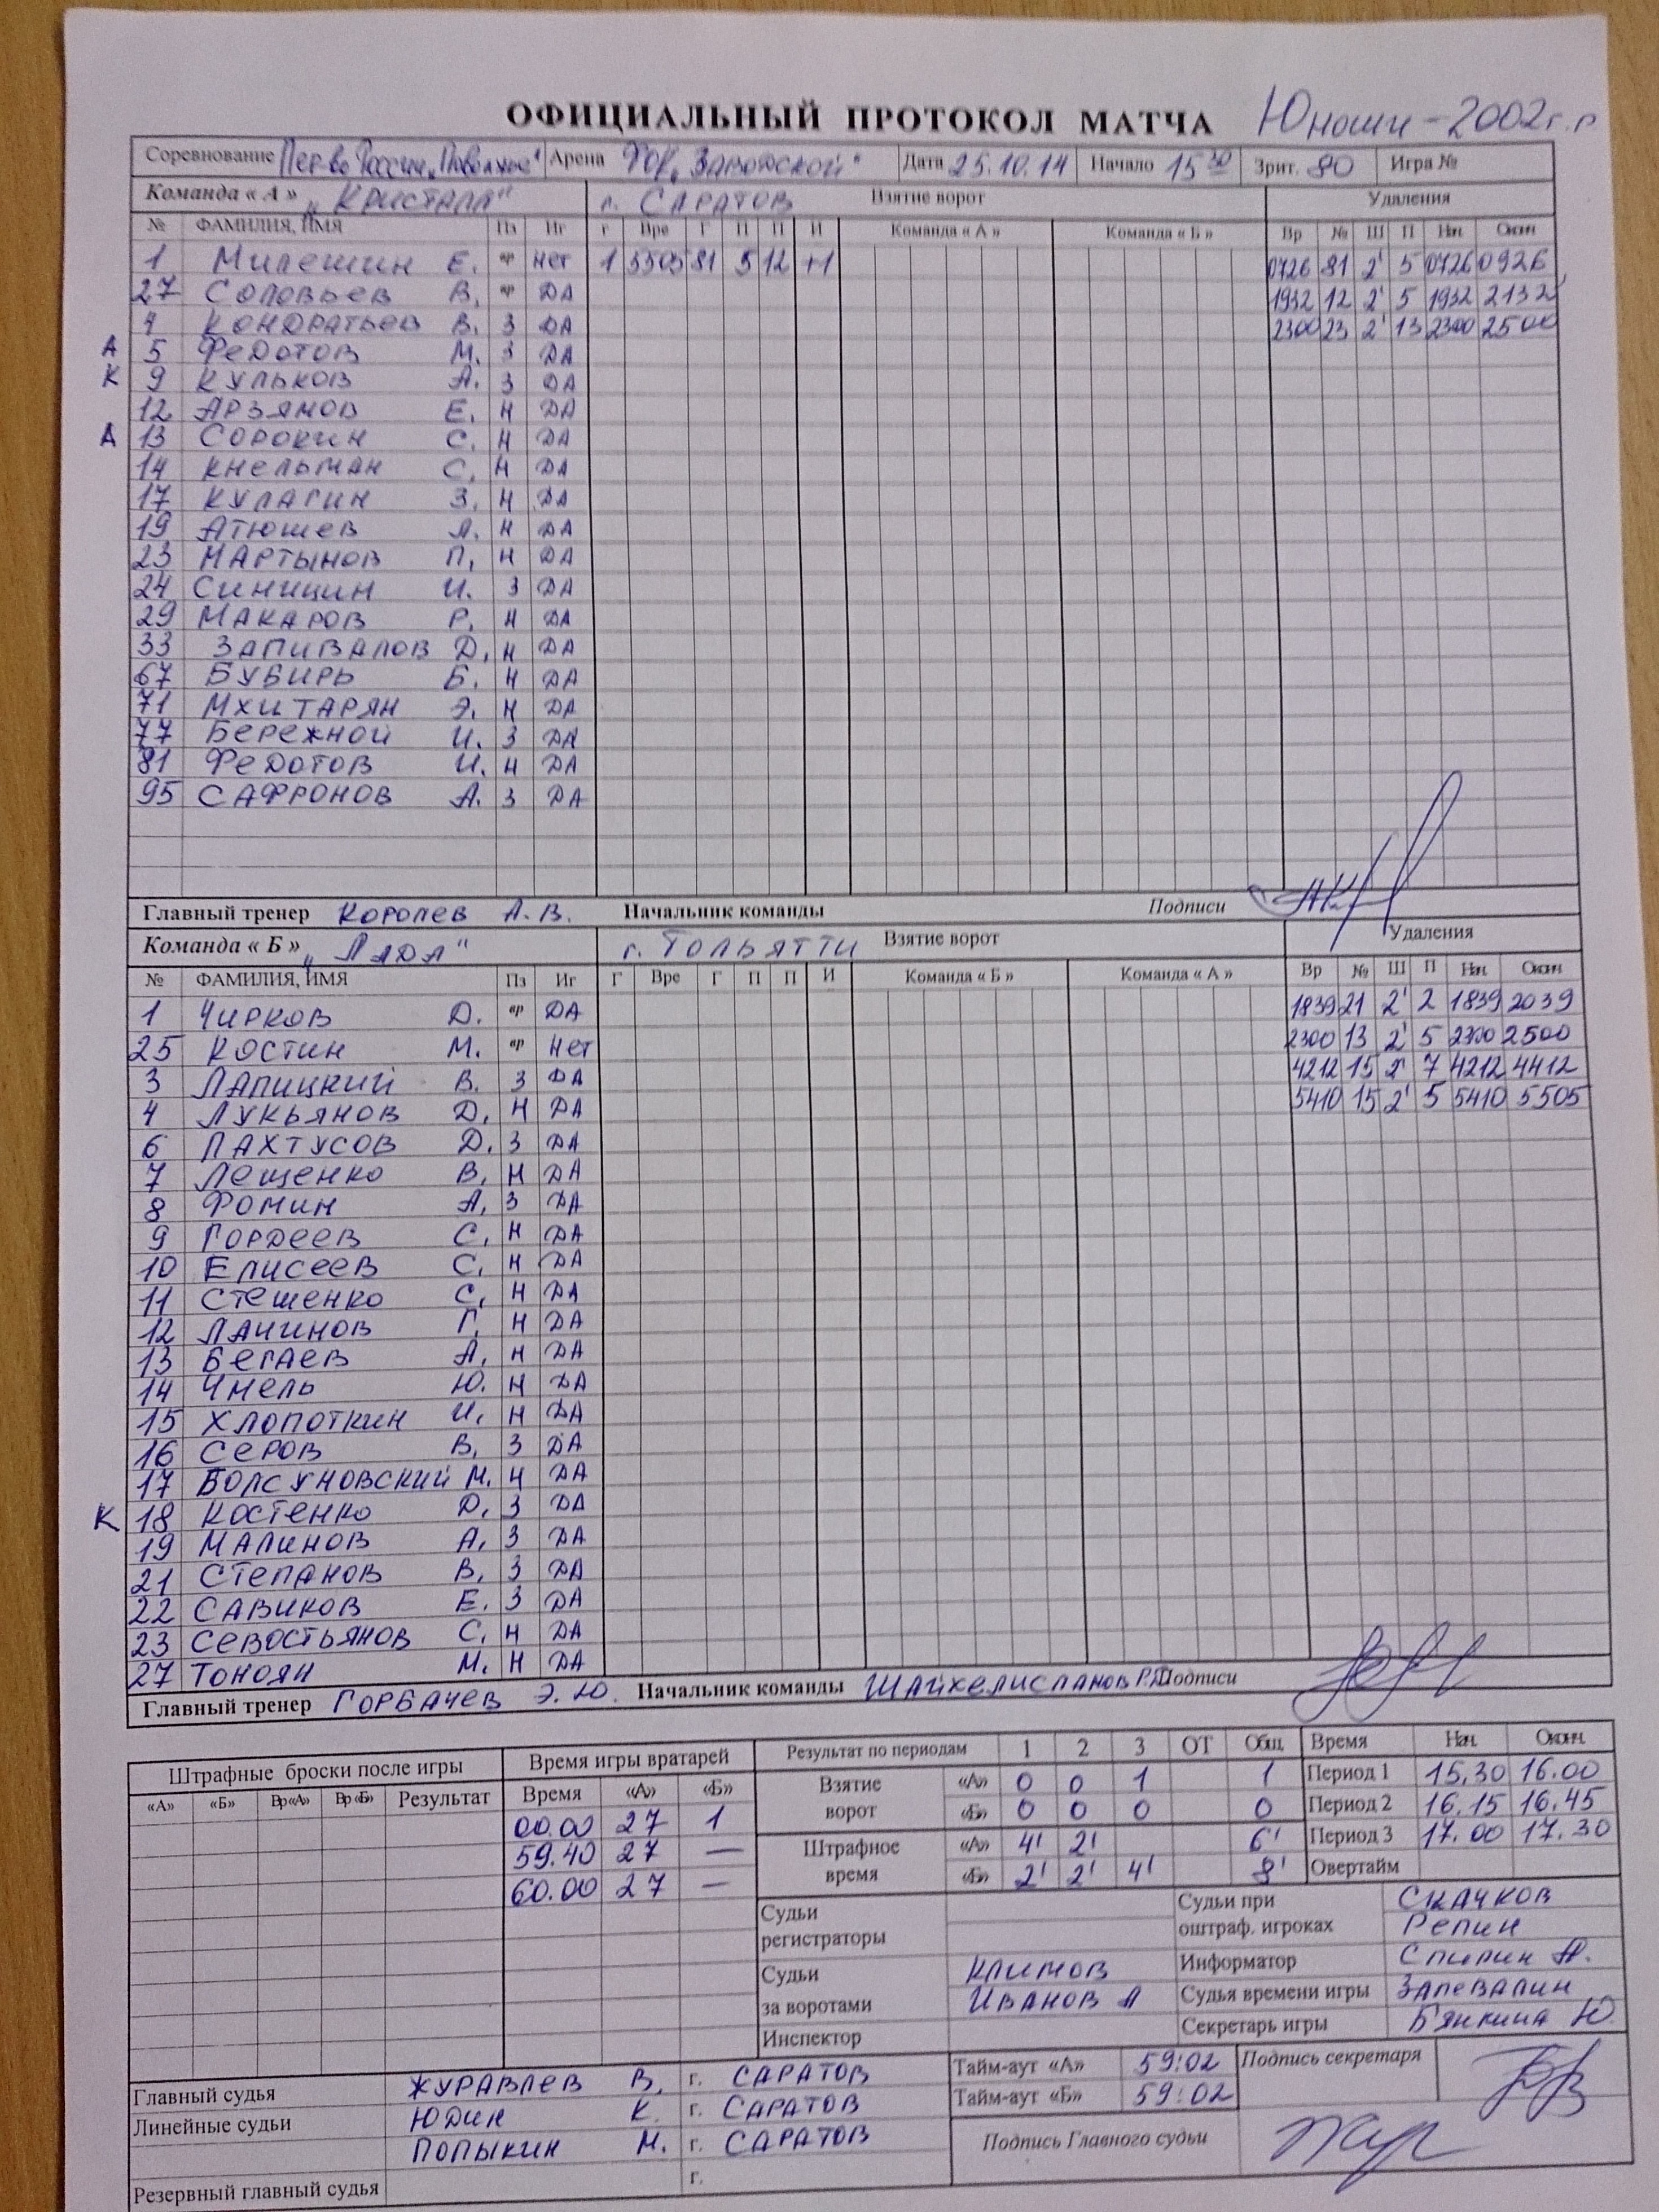 ОФИЦИАЛЬНЫЙ ПРОТОКОЛ МАТЧА Юноши - 2002 г.р
Соревнование Пер-во России „Поволжье" Арена „Заводской" Дата 25.10.14 Начало 15 30 Зрит. 80 Игра №
Команда « А » „ Кристалл" г. САРАТОВ Взятие ворот Удаления
№ ФАМИЛИЯ, ИМЯ Пз Иг Г Вре Г П П И Команда « А » Команда « Б » Вр № Ш П Нач. Оконч.
1 Милешин Е. вр Нет 1 5505 81 5 12 +1 0726 81 2' 5 0726 0926
27 Соловьев В. вр ДА 1932 12 2' 5 1932 2132
4 Кондратьев В. З ДА 2300 23 2' 13 2300 2500
А 5 Федотов М. З ДА
К 9 Кульков А. З ДА
12 Арзямов Е. Н ДА
А 13 Сорокин С. Н ДА
14 Кнельман С. Н ДА
17 Кулагин З. Н ДА
19 Атюшев А. Н ДА
23 Мартынов П. Н ДА
24 Синицин И. З ДА
29 Макаров Р. Н ДА
33 Запивалов Д. Н ДА
67 Бубирь Б. Н ДА
71 Мхитарян Э. Н ДА
77 Бережной И. З ДА
81 Федотов И. Н ДА
95 Сафронов А. З ДА
Главный тренер Королев А. В. Начальник команды Подписи
Команда « Б » „ ЛАДА" г. Тольятти Взятие ворот Удаления
№ ФАМИЛИЯ, ИМЯ Пз Иг Г Вре Г П П И Команда « Б » Команда « А » Вр № Ш П Нач. Оконч.
1 Чирков Д. вр ДА 1839 21 2' 2 1839 2039
25 Костин М. вр Нет 2300 13 2' 5 2300 2500
3 Лапицкий В. З ДА 4212 15 2' 7 4212 4412
4 Лукьянов Д. Н ДА 5410 15 2' 5 5410 5505
6 Пахтусов Д. З ДА
7 Лещенко В. Н ДА
8 Фомин А. З ДА
9 Гордеев С. Н ДА
10 Елисеев С. Н ДА
11 Стешенко С. Н ДА
12 Лачинов Г. Н ДА
13 Бегаев А. Н ДА
14 Чмель Ю. Н ДА
15 Хлопоткин И. Н ДА
16 Серов В. З ДА
17 Болсуновский М. Н ДА
К 18 Костенко Д. З ДА
19 Малинов А. З ДА
21 Степанов В. З ДА
22 Савиков Е. З ДА
23 Севостьянов С. Н ДА
27 Тоноян М. Н ДА
Главный тренер Горбачев Э. Ю. Начальник команды Шайхелисламов Р. Подписи
Штрафные броски после игры Время игры вратарей Результат по периодам 1 2 3 ОТ Общ. Время Нач. Оконч.
«А» «Б» Вр «А» Вр «Б» Результат Время «А» «Б» Взятие ворот «А» 0 0 1 1 Период 1 15.30 16.00
00.00 27 1 «Б» 0 0 0 0 Период 2 16.15 16.45
59.40 27 — Штрафное время «А» 4' 2' 6' Период 3 17.00 17.30
60.00 27 — «Б» 2' 2' 4' 8' Овертайм
Судьи регистраторы Судьи при оштраф. игроках Скачков
Репин
Судьи за воротами Климов Информатор Спирин А.
Иванов А Судья времени игры Запевалин
Инспектор Секретарь игры Бянкина Ю.
Главный судья Журавлев В. г. САРАТОВ Тайм-аут «А» 59:02 Подпись секретаря
Линейные судьи Юдин К. г. САРАТОВ Тайм-аут «Б» 59:02
Попыкин М. г. САРАТОВ Подпись Главного судьи
Резервный главный судья г.